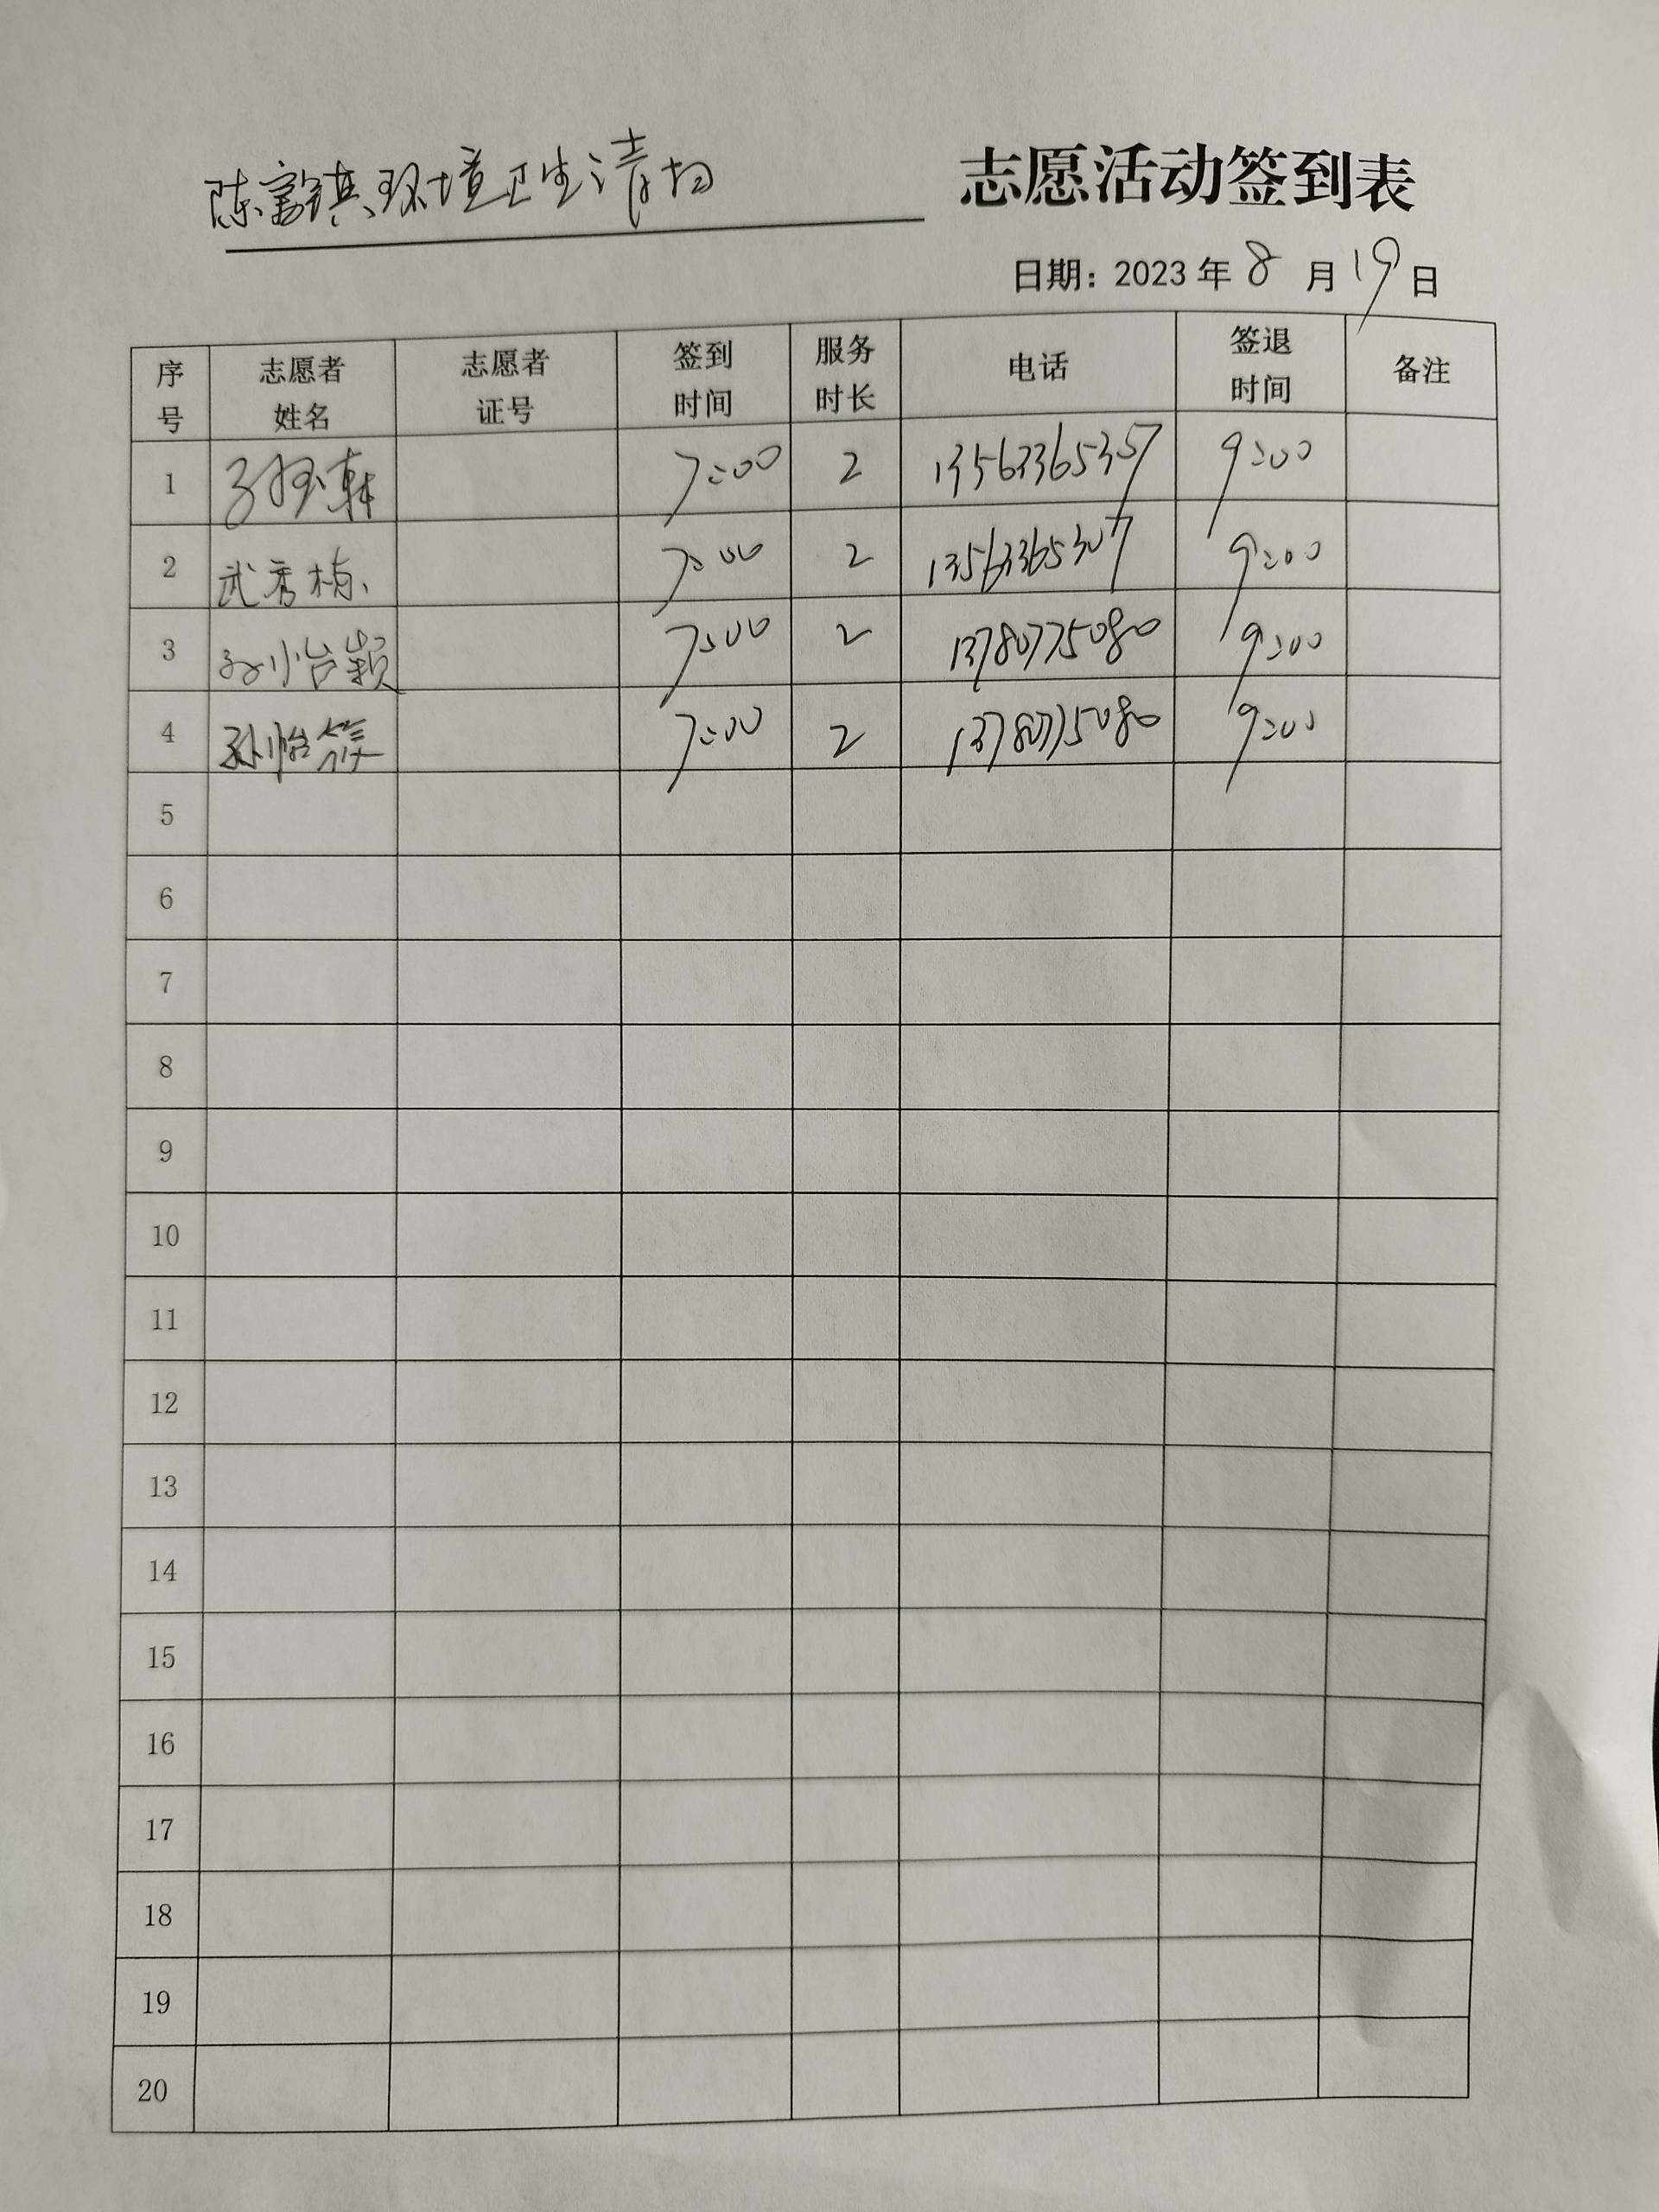 陈富镇环境卫生清扫 志愿活动签到表
日期：2023年8月19日
序号 志愿者姓名 志愿者证号 签到时间 服务时长 电话 签退时间 备注
1 7:00 2 13563365357 9:00
2 武秀梅 7:00 2 13563365307 9:00
3 孙怡颖 7:00 2 13780775080 9:00
4 孙怡 7:00 2 13780775080 9:00
5
6
7
8
9
10
11
12
13
14
15
16
17
18
19
20